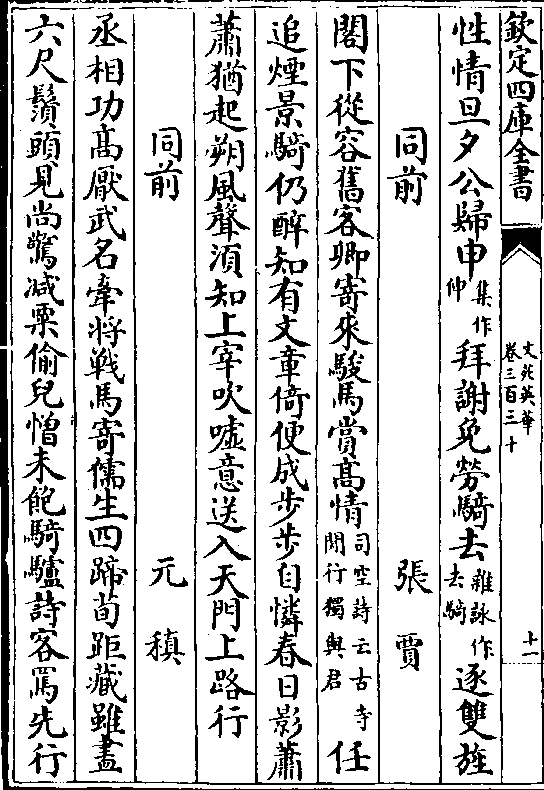 欽定四庫全書
文苑英華
卷三百三十
十一
性情旦夕公歸申集作仲拜謝免勞騎去雜詠作去騎逐雙旌
同前 張賈
閣下從容舊客卿寄來駿馬賞髙情司空詩云古寺閒行獨與君任
追煙景騎仍醉知有文章倚便成步步自憐春日影蕭
蕭猶起朔風聲須知上宰吹嘘意送入天門上路行
同前 元稹
丞相功髙厭武名牽將戰馬寄儒生四蹄荀距藏雖盡
六尺鬚頭見尚驚减粟偷兒憎未飽騎驢詩客罵先行